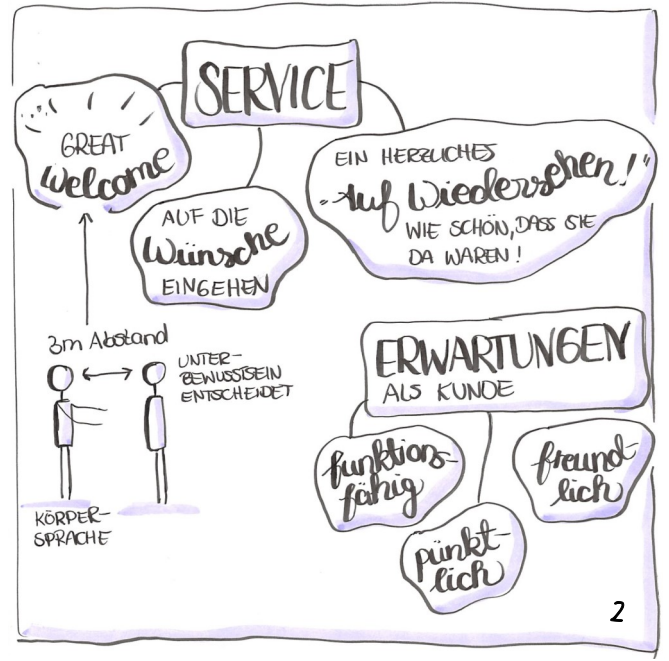 SERVICE
GREAT
welcome
AUF DIE
Wünsche
EINGEHEN
EIN HERZLICHES
"Auf Wiedersehen!"
WIE SCHÖN, DASS SIE
DA WAREN!
3m Abstand
UNTER-
BEWUSSTSEIN
ENTSCHEIDET
KÖRPER-
SPRACHE
ERWARTUNGEN
ALS KUNDE
funktions-
fähig
pünkt-
lich
freund-
lich
2